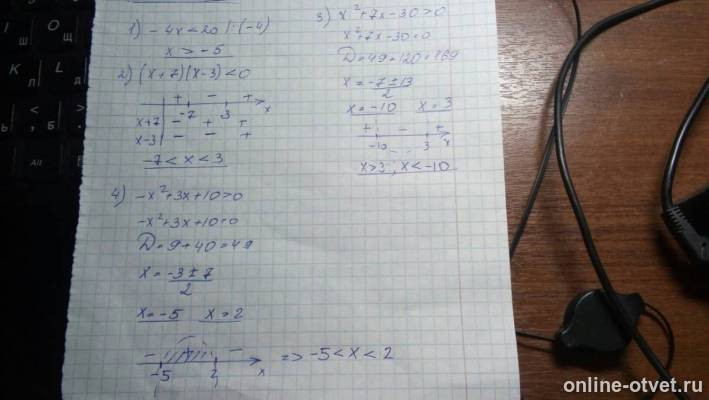 1) -4x < 20 | : (-4)
x > -5
2) (x+7)(x-3) < 0
+ - +
-7 3 x
x+7 - + +
x-3 - - +
-7 < x < 3
3) x²+7x-30>0
x²+7x-30=0
D=49+120=169
x = -7 ± 13
2
x=-10 x=3
+ - +
-10 3 x
x>3 ; x<-10
4) -x²+3x+10>0
-x²+3x+10=0
D=9+40=49
x = -3 ± 7
2
x=-5 x=2
- + -
-5 2 x
=> -5 < x < 2
Л
Д
Б
Ш
O
Щ
К
Alt
online-otvet.ru